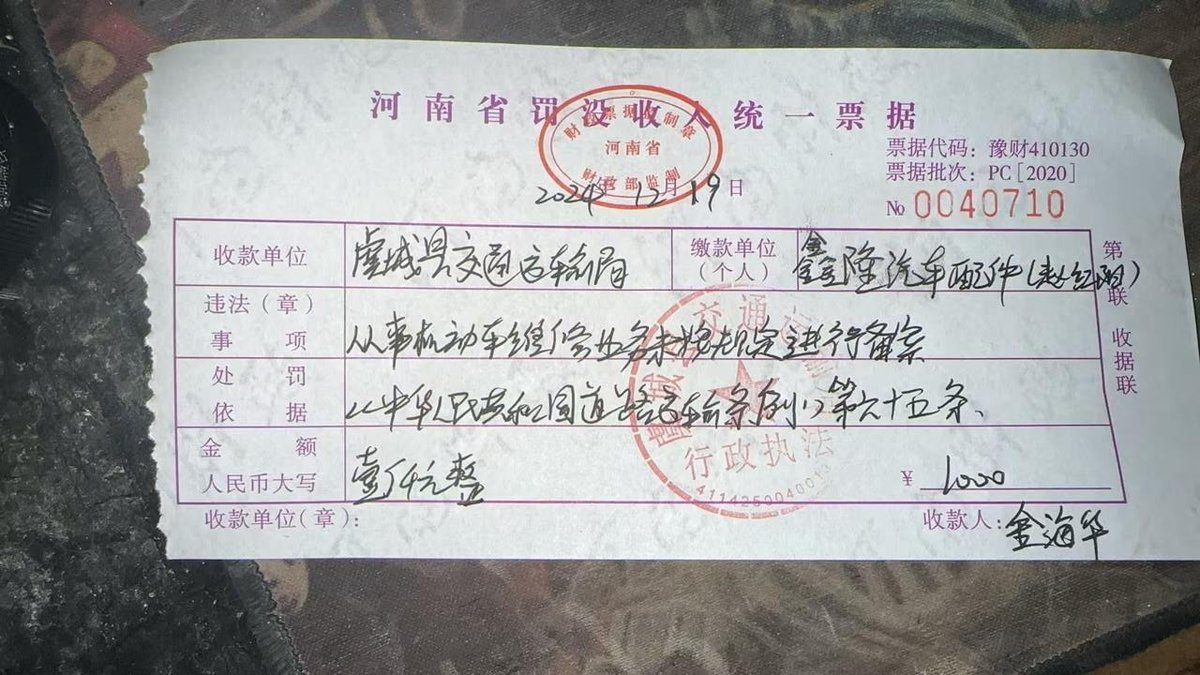 河南省罚没收入统一票据
财政票据监制章
河南省
财政部监制
票据代码：豫财410130
票据批次：PC[2020]
№ 0040710
2024年12月19日
收款单位 虞城县交通运输局 缴款单位（个人） 鑫鑫隆汽车配件(赵红
第 联 收据联
违法（章）事项 从事机动车维修业务未按规定进行备案
处罚依据 《中华人民共和国道路运输条例》第六十五条、
金额人民币大写 壹仟元整 ¥ 1000
虞城 交通
行政执法
收款单位(章)： 收款人：金海华